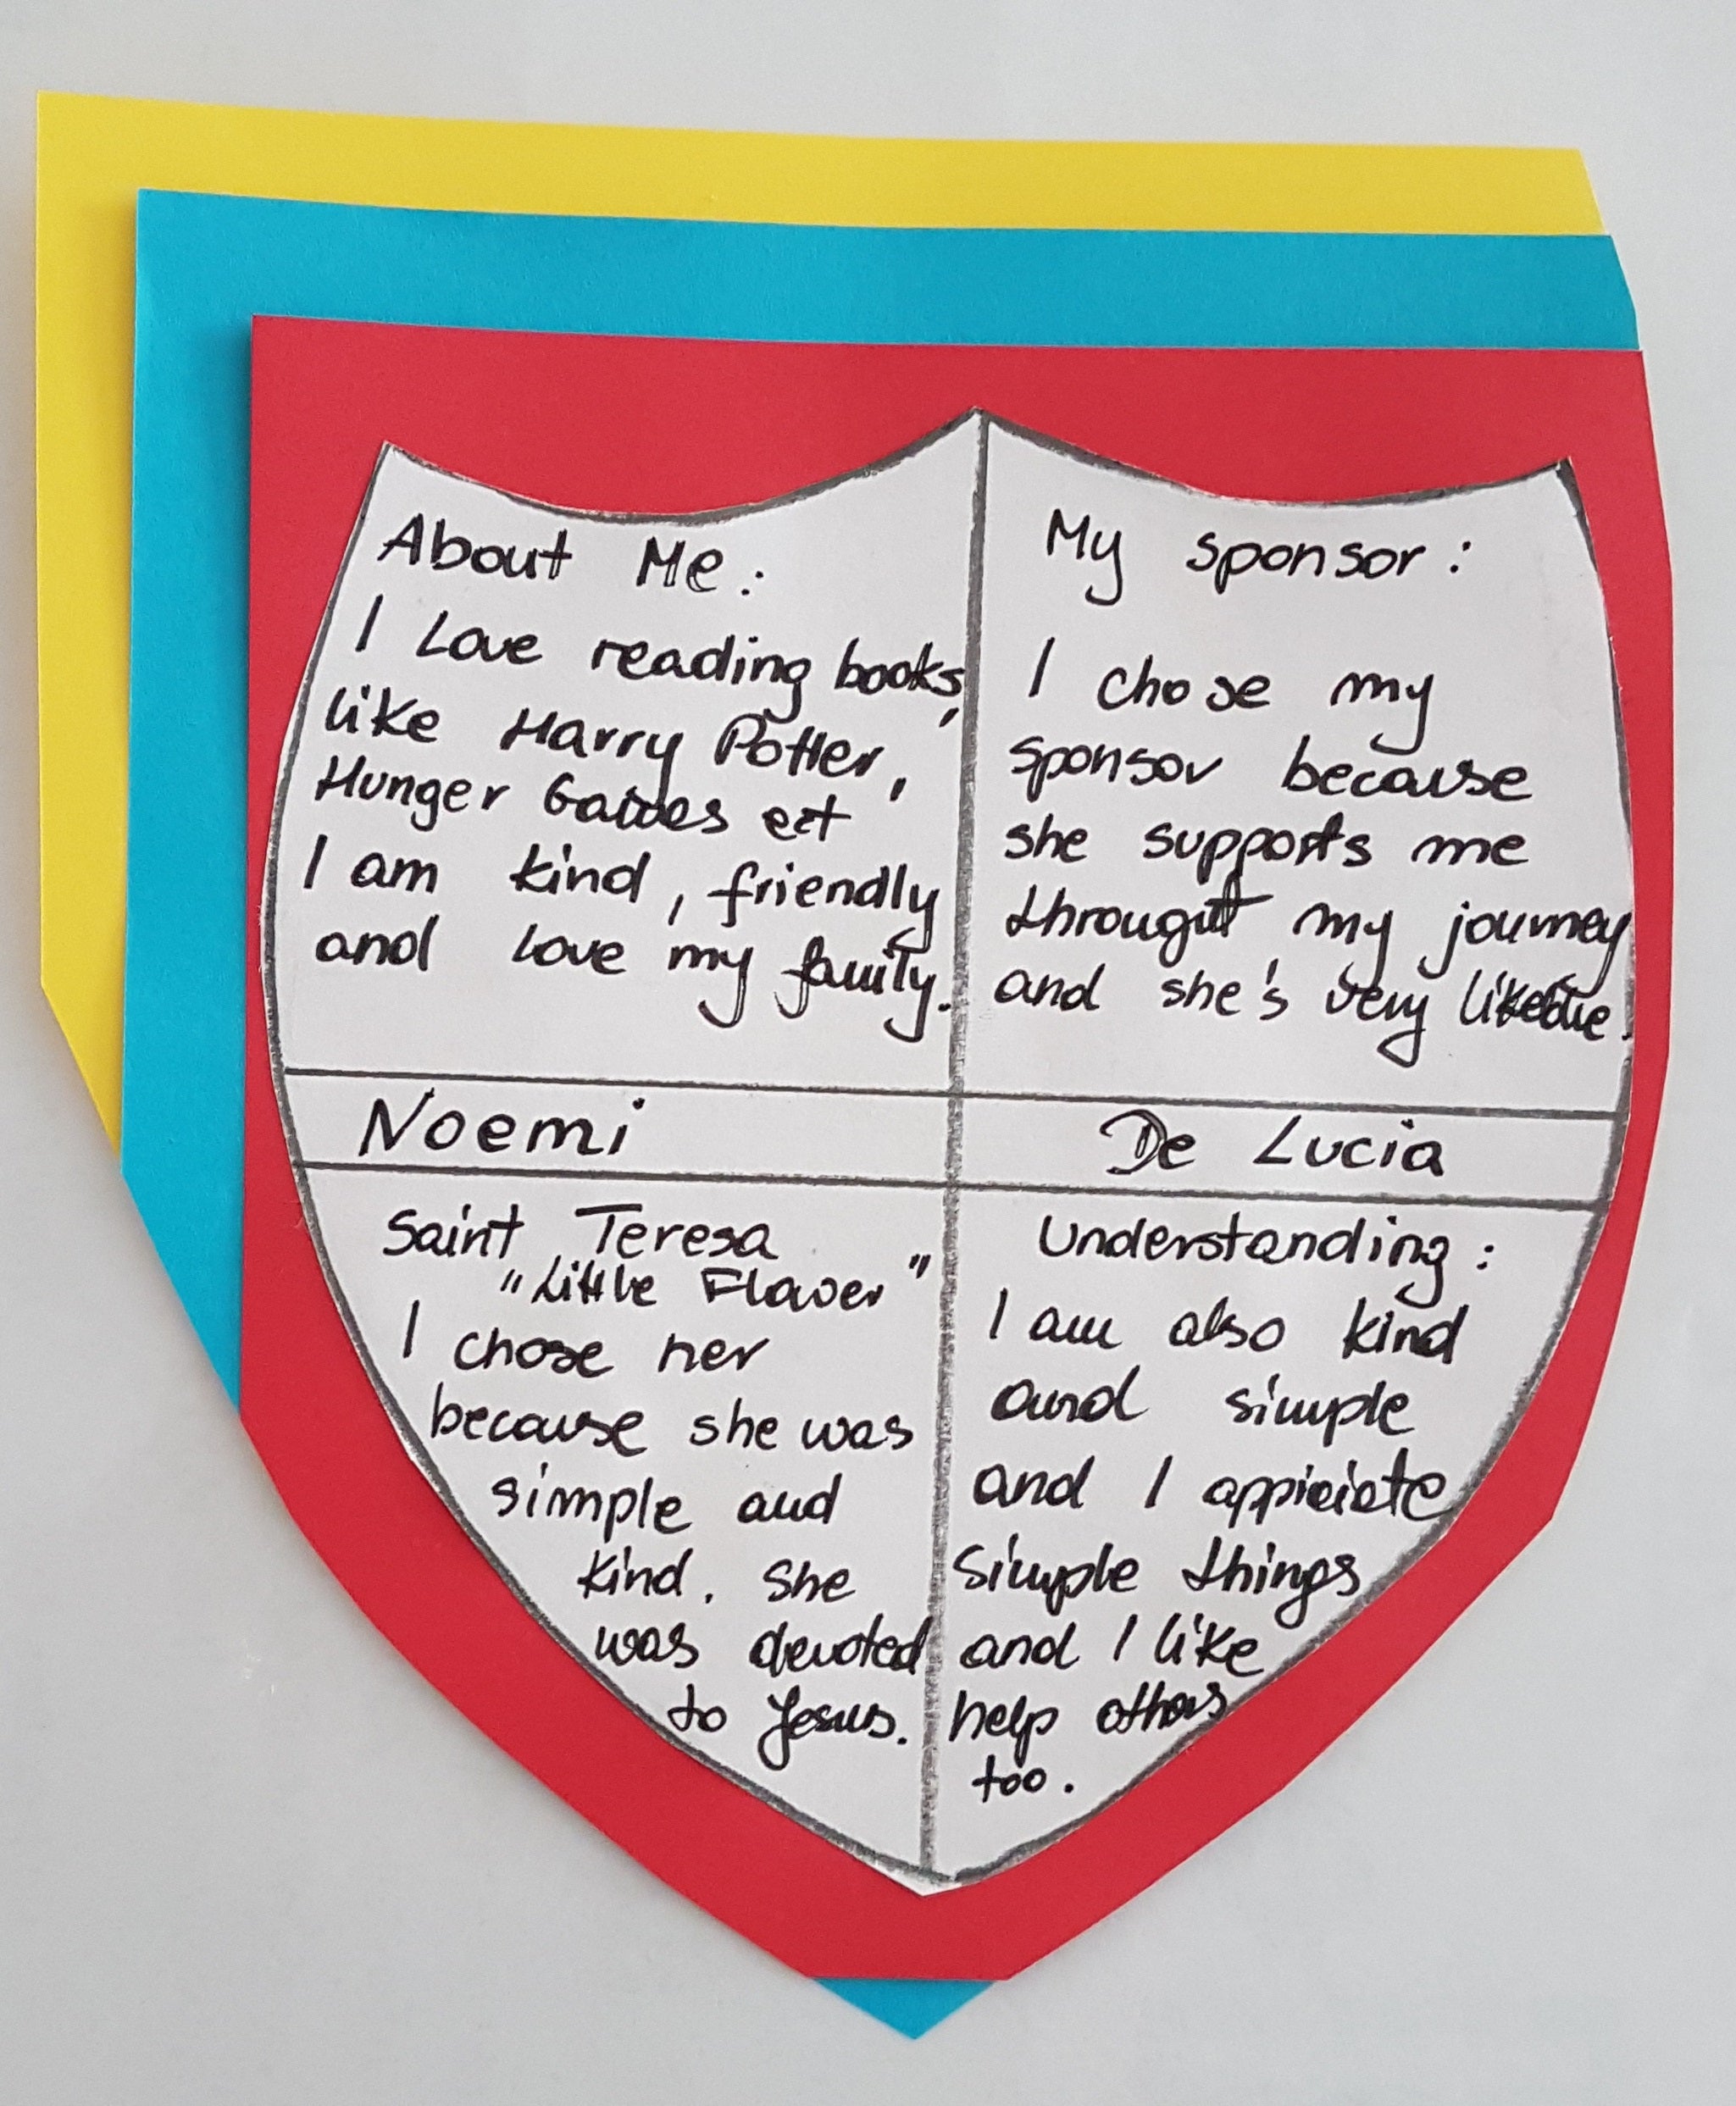 About Me:
I Love reading books,
like Harry Potter,
Hunger Games ect
I am kind, friendly
and love my family.
My sponsor:
I chose my
sponsor because
she supports me
throught my journey
and she's very
Noemi
De Lucia
Saint Teresa
"Little Flower"
I chose her
because she was
simple and
kind. She
was devoted
to Jesus.
Understanding:
I am also kind
and simple
and I
simple things
and I like
help others
too.